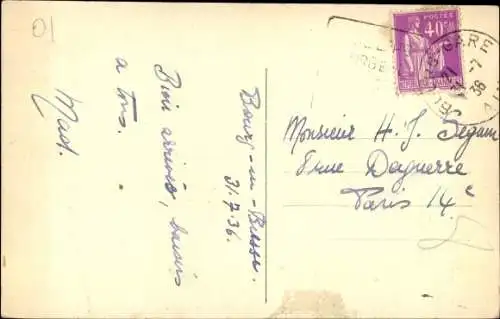 01
Bourg-en-Bresse.
31.7.36.
Bien arrivés, baisers
a tous.
Mad.
POSTES
40
GARE
7
36
Monsieur H. J. Seguin
rue Daguerre
Paris 14e